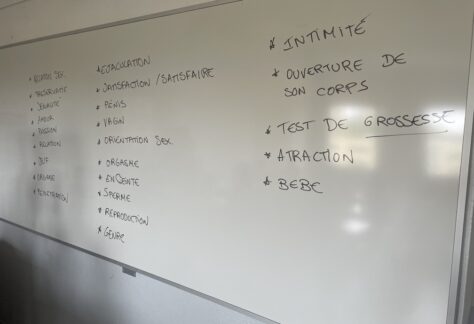 * RELATION SEX.
* PRESERVATIF
* SEXUALITÉ
* AMOUR
* PASSION
* RELATION
* DUR
* ORGASME
* PENETRATION
* EJACULATION
* SATISFACTION / SATISFAIRE
* PÉNIS
* VAGIN
* ORIENTATION SEX.
* ORGASME
* ENCEINTE
* SPERME
* REPRODUCTION
* GENRE
* INTIMITÉ
* OUVERTURE DE
SON CORPS
* TEST DE GROSSESSE
* ATRACTION
* BEBE